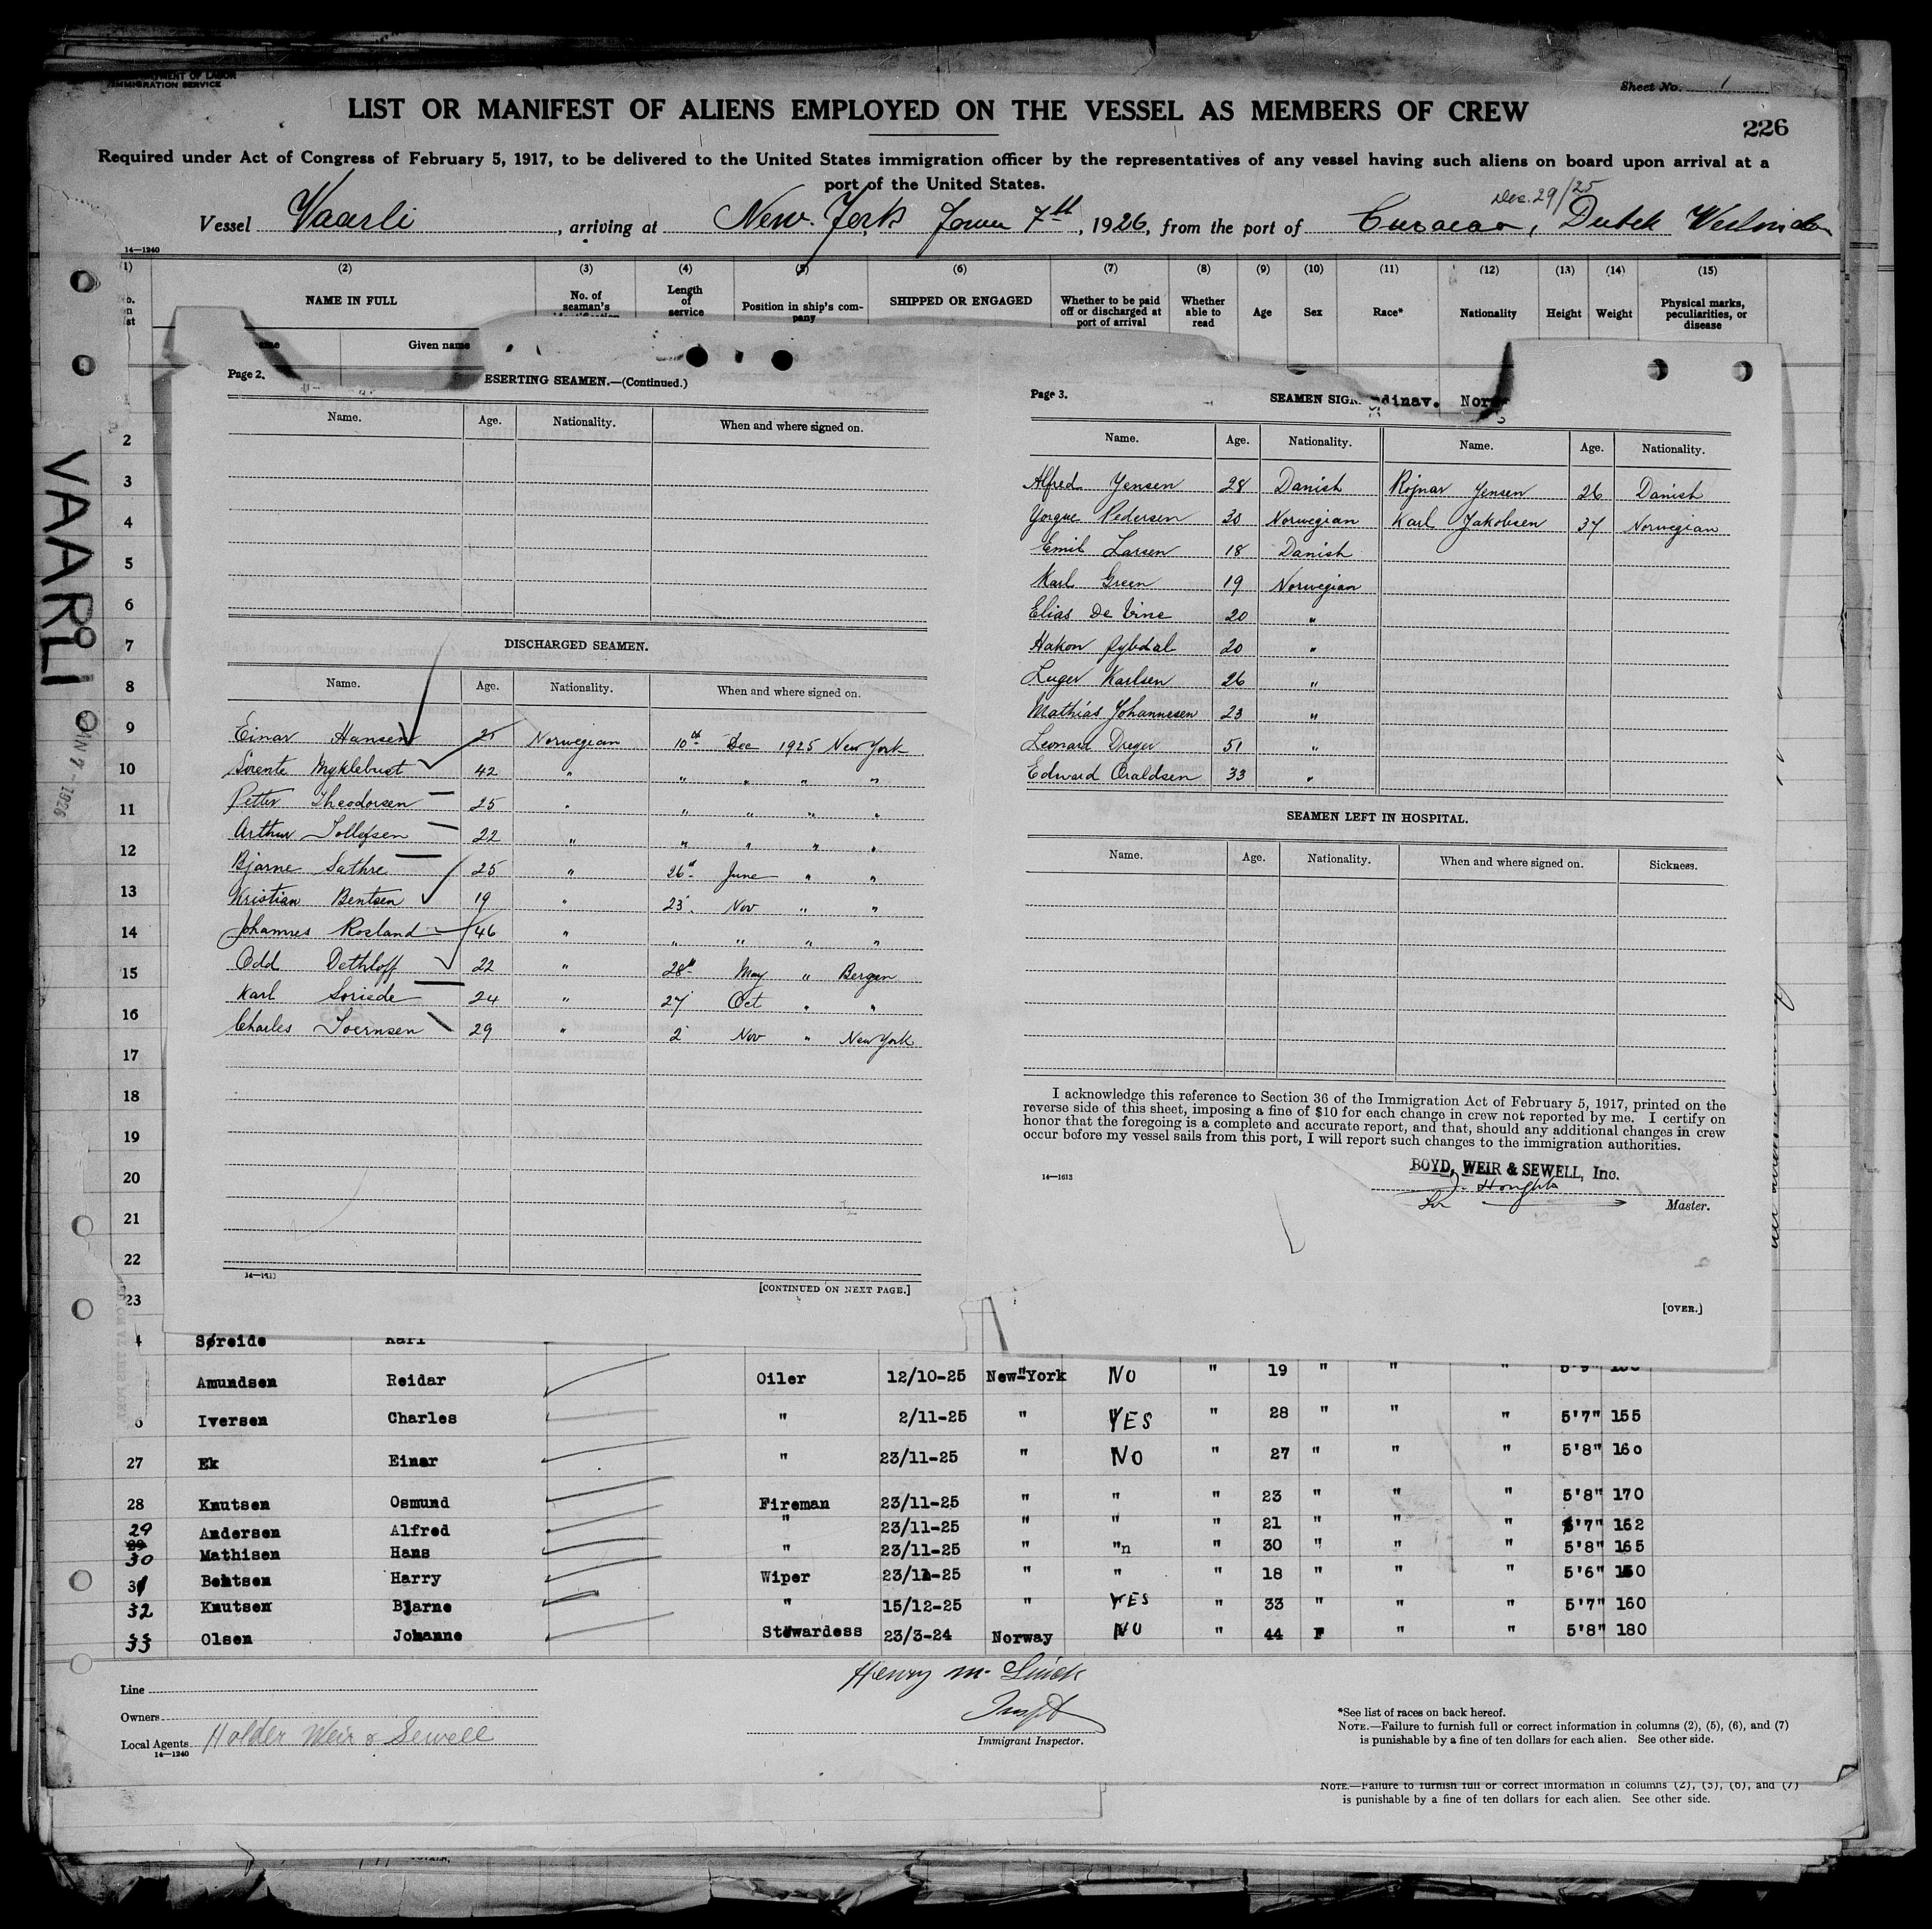 DEPARTMENT OF LABOR
IMMIGRATION SERVICE
Sheet No. 1
LIST OR MANIFEST OF ALIENS EMPLOYED ON THE VESSEL AS MEMBERS OF CREW
226
Required under Act of Congress of February 5, 1917, to be delivered to the United States immigration officer by the representatives of any vessel having such aliens on board upon arrival at a
port of the United States.
Dec. 29/25
Vessel Vaarli, arriving at New-York, 7th, 1926, from the port of Curacao, Dutch
14—1240
(1) (2) (3) (4) (5) (6) (7) (8) (9) (10) (11) (12) (13) (14) (15)
NAME IN FULL No. of seaman's Length of service Position in ship's company SHIPPED OR ENGAGED Whether to be paid off or discharged at port of arrival Whether able to read Age Sex Race* Nationality Height Weight Physical marks, peculiarities, or disease
Given name
VAARLI
JAN 7 - 1926
2
3
4
5
6
7
8
9
10
11
12
13
14
15
16
17
18
19
20
21
22
23
Page 2.
ESERTING SEAMEN.—(Continued.)
Name. Age. Nationality. When and where signed on.
DISCHARGED SEAMEN.
Name. Age. Nationality. When and where signed on.
Einar Hansen 21 Norwegian 10th Dec 1925 New York
Sorente Myklebust 42 " " " " "
Petter Theodorsen 25 " " " " "
Arthur Tollefsen 22 " " " " "
Bjarne Sathre 25 " 26th June " "
Kristian Bentsen 19 " 23 Nov " "
Johannes Rosland 46 " " " " "
Odd Dethloff 22 " 28th May " Bergen
Karl Soriede 24 " 27 Oct " "
Charles Ivernsen 29 " 2 Nov " New York
[CONTINUED ON NEXT PAGE.]
Page 3.
SEAMEN SIGN
dinav. Nor
Name. Age. Nationality. Name. Age. Nationality.
Alfred Jensen 28 Danish Rojnar Jensen 26 Danish
Yorgue Pedersen 30 Norwegian Karl Jakobsen 37 Norwegian
Emil Larsen 18 Danish
Karl Green 19 Norwegian
Elias De Vine 20 "
Hakon 20 "
Luger Karlsen 26 "
Mathias Johannesen 23 "
Leonard Dreyer 51 "
Edward Oraldsen 33 "
SEAMEN LEFT IN HOSPITAL.
Name. Age. Nationality. When and where signed on. Sickness.
I acknowledge this reference to Section 36 of the Immigration Act of February 5, 1917, printed on the
reverse side of this sheet, imposing a fine of $10 for each change in crew not reported by me. I certify on
honor that the foregoing is a complete and accurate report, and that, should any additional changes in crew
occur before my vessel sails from this port, I will report such changes to the immigration authorities.
14—1613
BOYD, WEIR & SEWELL, Inc.
Master.
[OVER.]
Søreide Karl
Amundsen Reidar Oiler 12/10-25 New-York NO " 19 " " " 5'9"
Iversen Charles " 2/11-25 " YES " 28 " " " 5'7" 155
27 Ek Einar " 23/11-25 " NO " 27 " " " 5'8" 160
28 Knutsen Osmund Fireman 23/11-25 " " " 23 " " " 5'8" 170
29 Andersen Alfred " 23/11-25 " " " 21 " " " 5'7" 152
30 Mathisen Hans " 23/11-25 " "n " 30 " " " 5'8" 165
31 Bentsen Harry Wiper 23/11-25 " " " 18 " " " 5'6" 150
32 Knutsen Bjarne " 15/12-25 " YES " 33 " " " 5'7" 160
33 Olsen Johanne Stewardess 23/3-24 Norway NO " 44 F " " 5'8" 180
Line
Owners
Local Agents Holder Weir & Sewell
14—1240
Henry M.
Immigrant Inspector.
*See list of races on back hereof.
NOTE.—Failure to furnish full or correct information in columns (2), (5), (6), and (7)
is punishable by a fine of ten dollars for each alien. See other side.
NOTE.—Failure to furnish full or correct information in columns (2), (5), (6), and (7)
is punishable by a fine of ten dollars for each alien. See other side.